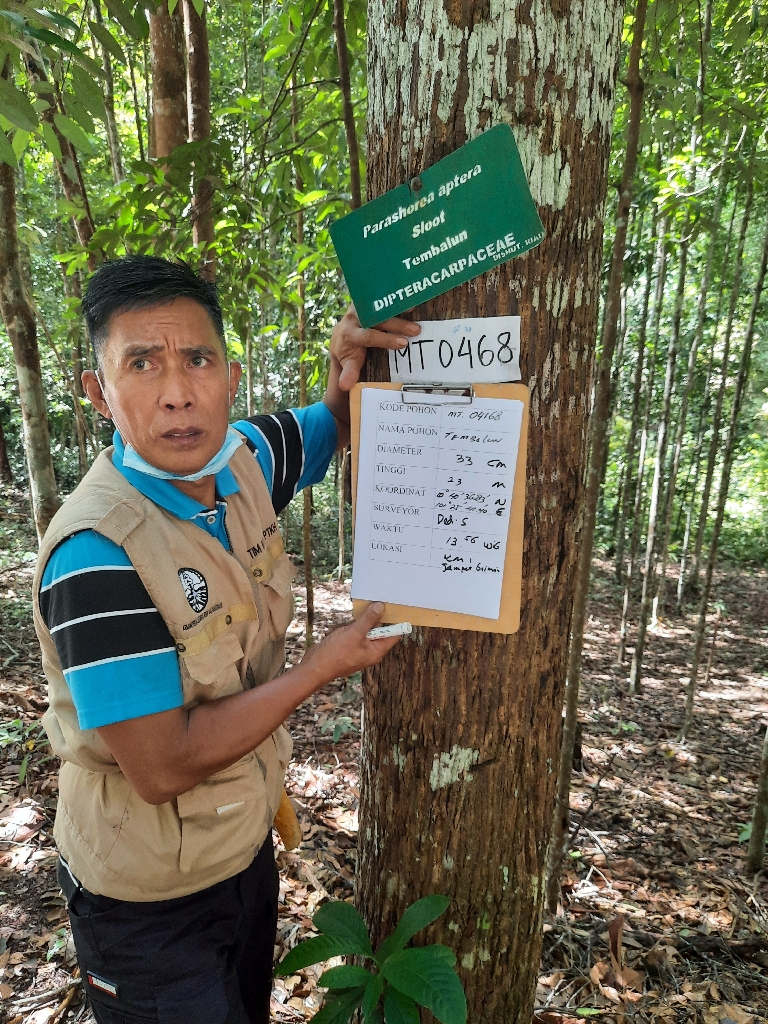 Parashorea aptera
Sloot
Tembalun
DIPTERACARPACEAE
DISHUT. RIAU
MT0468
KODE POHON MT. 04168
NAMA POHON Tembalun
DIAMETER 33 cm
TINGGI 23 m
KOORDINAT N
E
SURVEYOR Ded. S
WAKTU 13 56 WIB
LOKASI KM 1
TIM